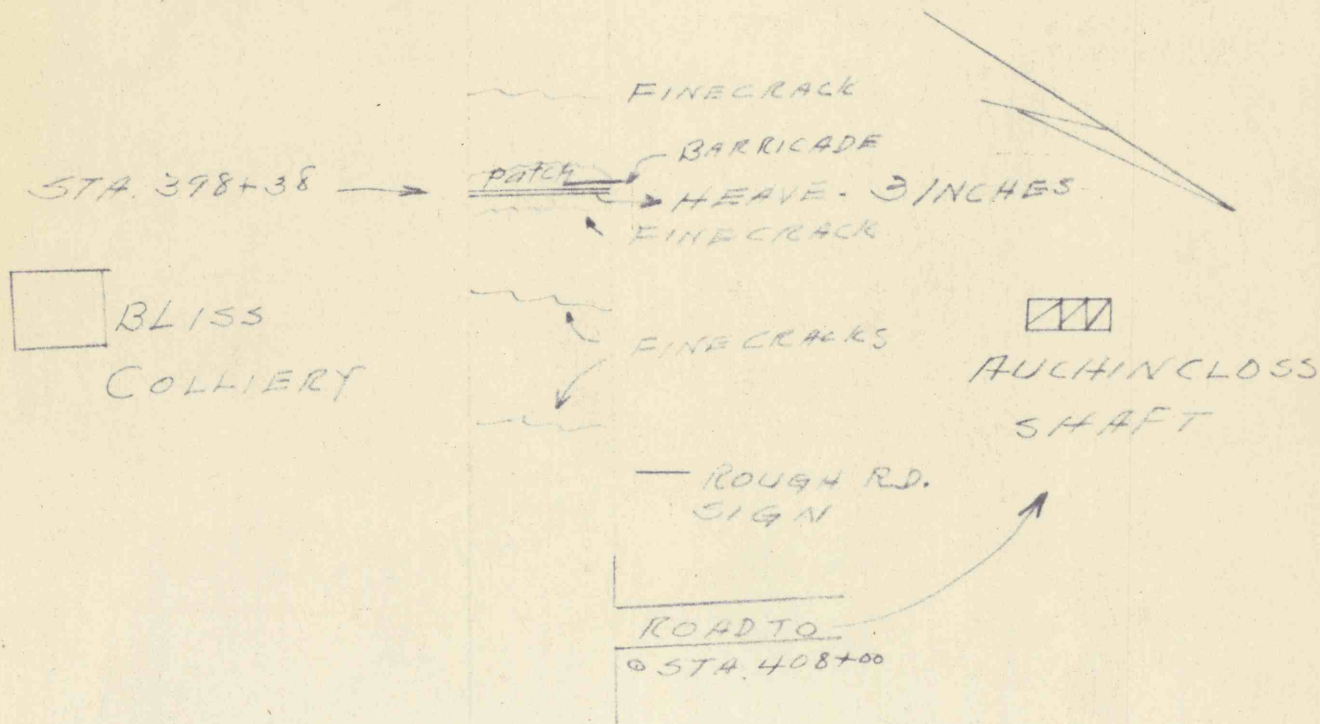 FINE CRACK
BARRICADE
patch
STA. 398+38
HEAVE - 3 INCHES
FINE CRACK
BLISS
COLLIERY
FINE CRACKS
AUCHINCLOSS
SHAFT
ROUGH RD.
SIGN
ROAD TO
STA. 408+00